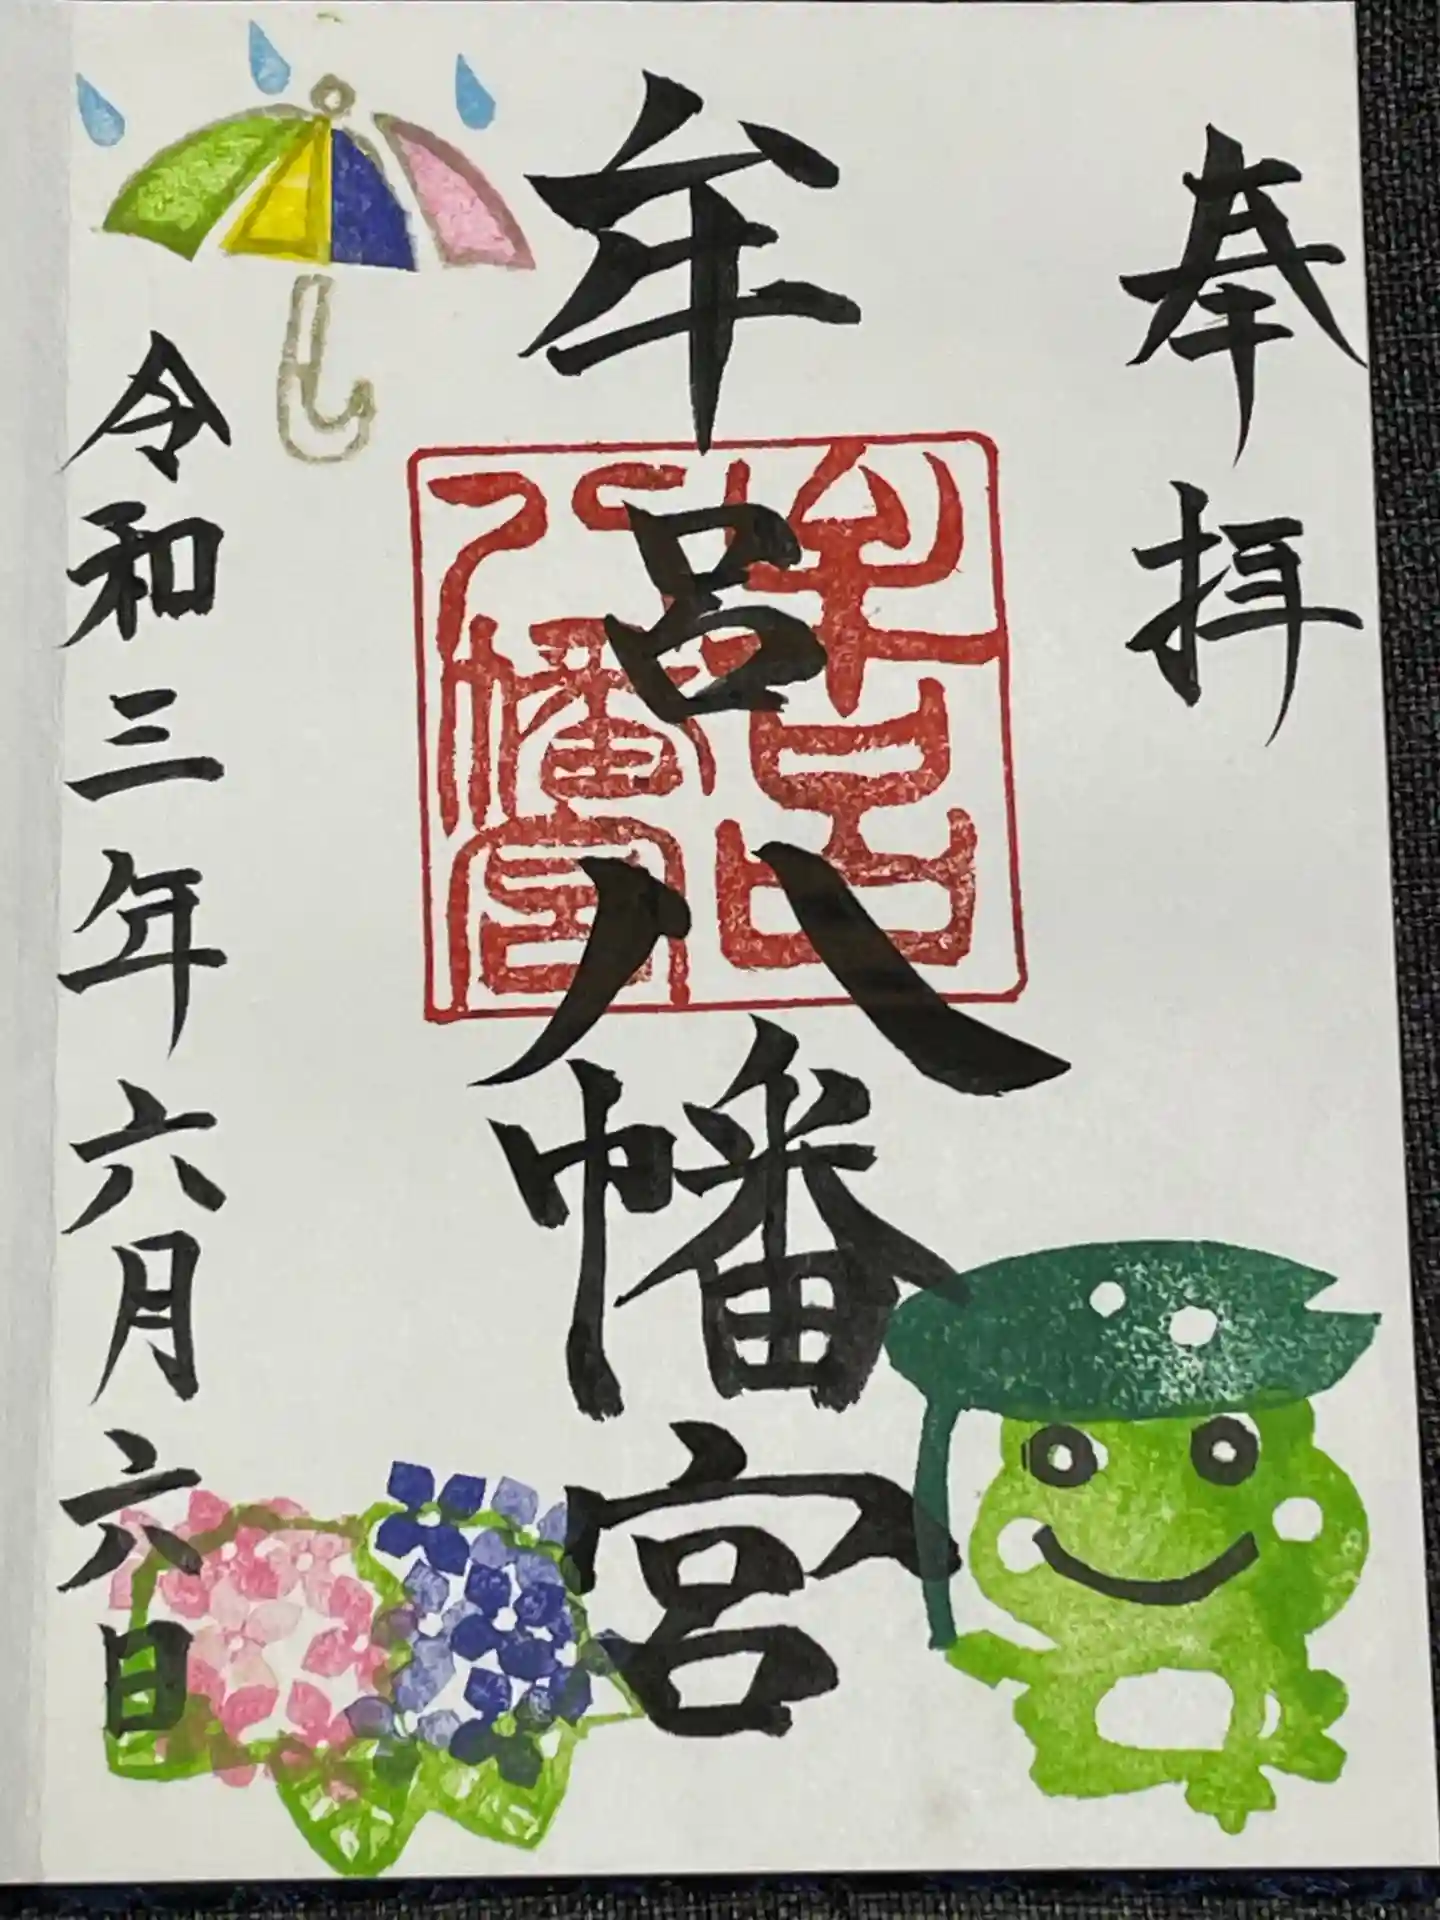 奉拝
牟呂八幡宮
牟呂
八幡宮
令和三年六月六日